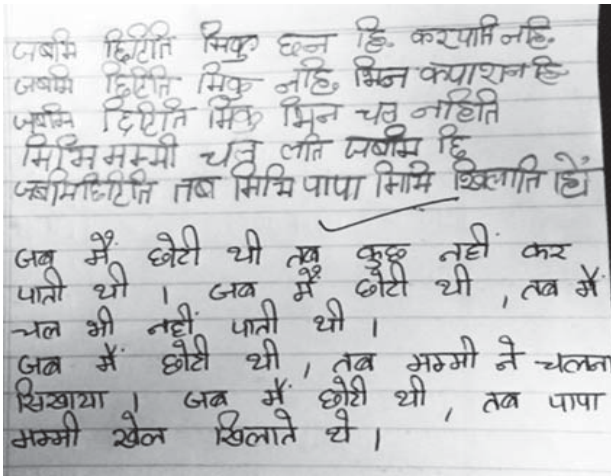 जबमि छिटिति मिकु छन हि. करपाति नहि.
जबमि छिटिति मिकु नहि, मिन कपाशन हि.
जुबमि छिटिति मिकु मिन चल नहिति
मिमि मम्मी चलु लति जबमि हि
जबमिछिटिति तबा मिमि पापा मिमि खिलाति हों
जब मैं छोटी थी तब कुछ नहीं कर
पाती थी । जब मैं छोटी थी , तब मैं
चल भी नहीं पाती थी ।
जब मैं छोटी थी , तब मम्मी ने चलना
सिखाया । जब मैं छोटी थी , तब पापा
मम्मी खेल खिलाते थे ।